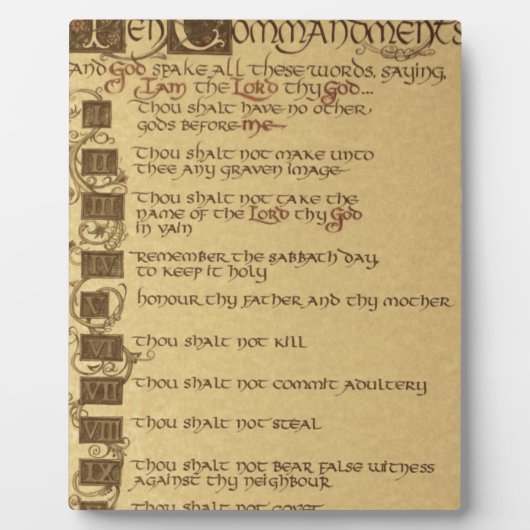 Ten Commandments
and God spake all these words, saying,
I am the Lord thy God...
I
Thou shalt have no other
gods before me
II
Thou shalt not make unto
thee any graven image
III
Thou shalt not take the
name of the Lord thy God
in vain
IV
Remember the sabbath day,
to keep it holy
V
honour thy father and thy mother
VI
Thou shalt not kill
VII
Thou shalt not commit adultery
VIII
Thou shalt not steal
IX
Thou shalt not bear false witness
against thy neighbour
Thou shalt not covet